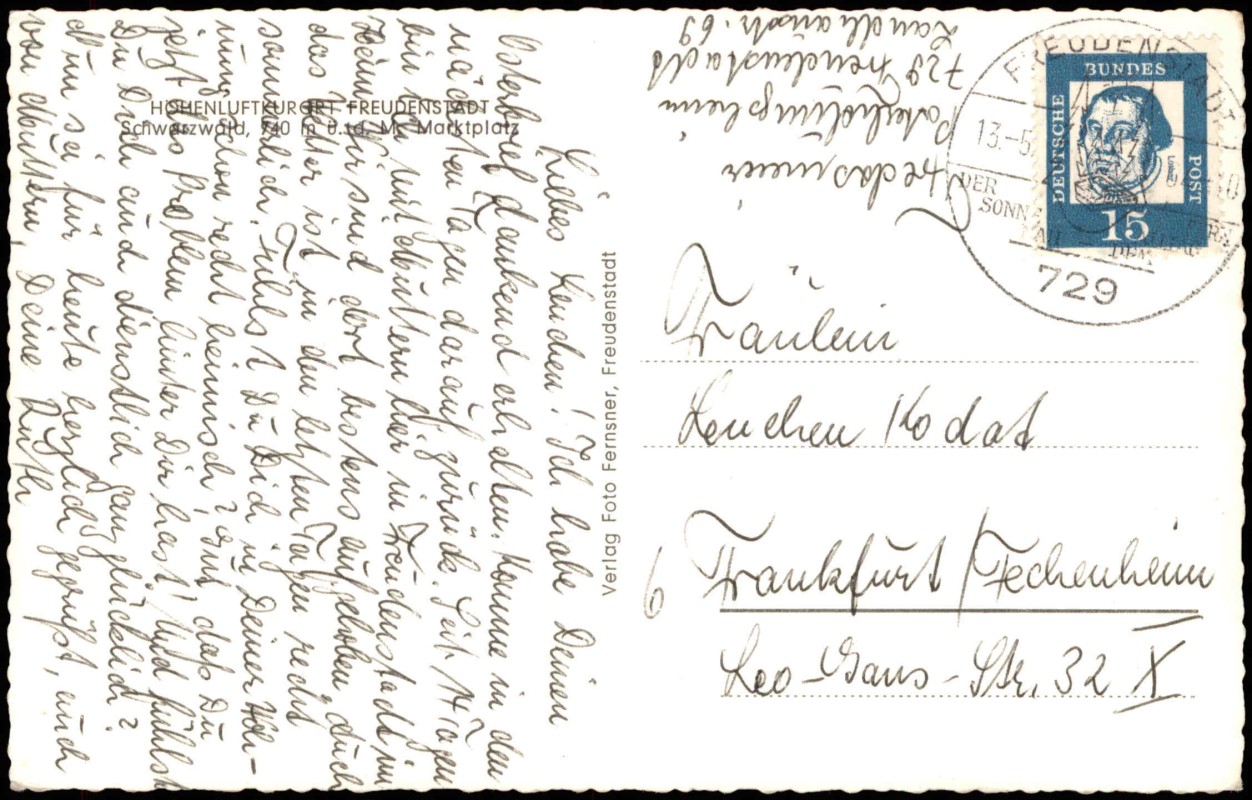 HÖHENLUFTKURORT FREUDENSTADT
Schwarzwald, 740 m ü. d. M. Marktplatz
Liebes Lenchen! Ich habe Deinen
Osterbrief dankend erhalten. Komme in den
nächsten Tagen darauf zurück. Seit 4 Tagen
bin ich mit Muttern hier in Freudenstadt im
Heim. Wir sind dort bestens aufgehoben, auch
das Wetter ist in den letzten Tagen recht
sommerlich. Fühlst Du Dich in Deiner Woh-
nung schon recht heimisch? Gut, daß Du
jetzt das Problem hinter Dir hast! Und fühlst
Du Dich auch dienstlich ganz glücklich?
Nun sei für heute herzlich gegrüßt, auch
von Muttern, Deine Ruth
Verlag Foto Fernsner, Freudenstadt
729 Freudenstadt
Landhausstr. 69
FREUDENSTADT
13.-5.
DER
SONN
729
DEUTSCHE
BUNDES
POST
15
Fräulein
Lenchen Kodat
6 Frankfurt / Fechenheim
Leo-Gans-Str. 32 X